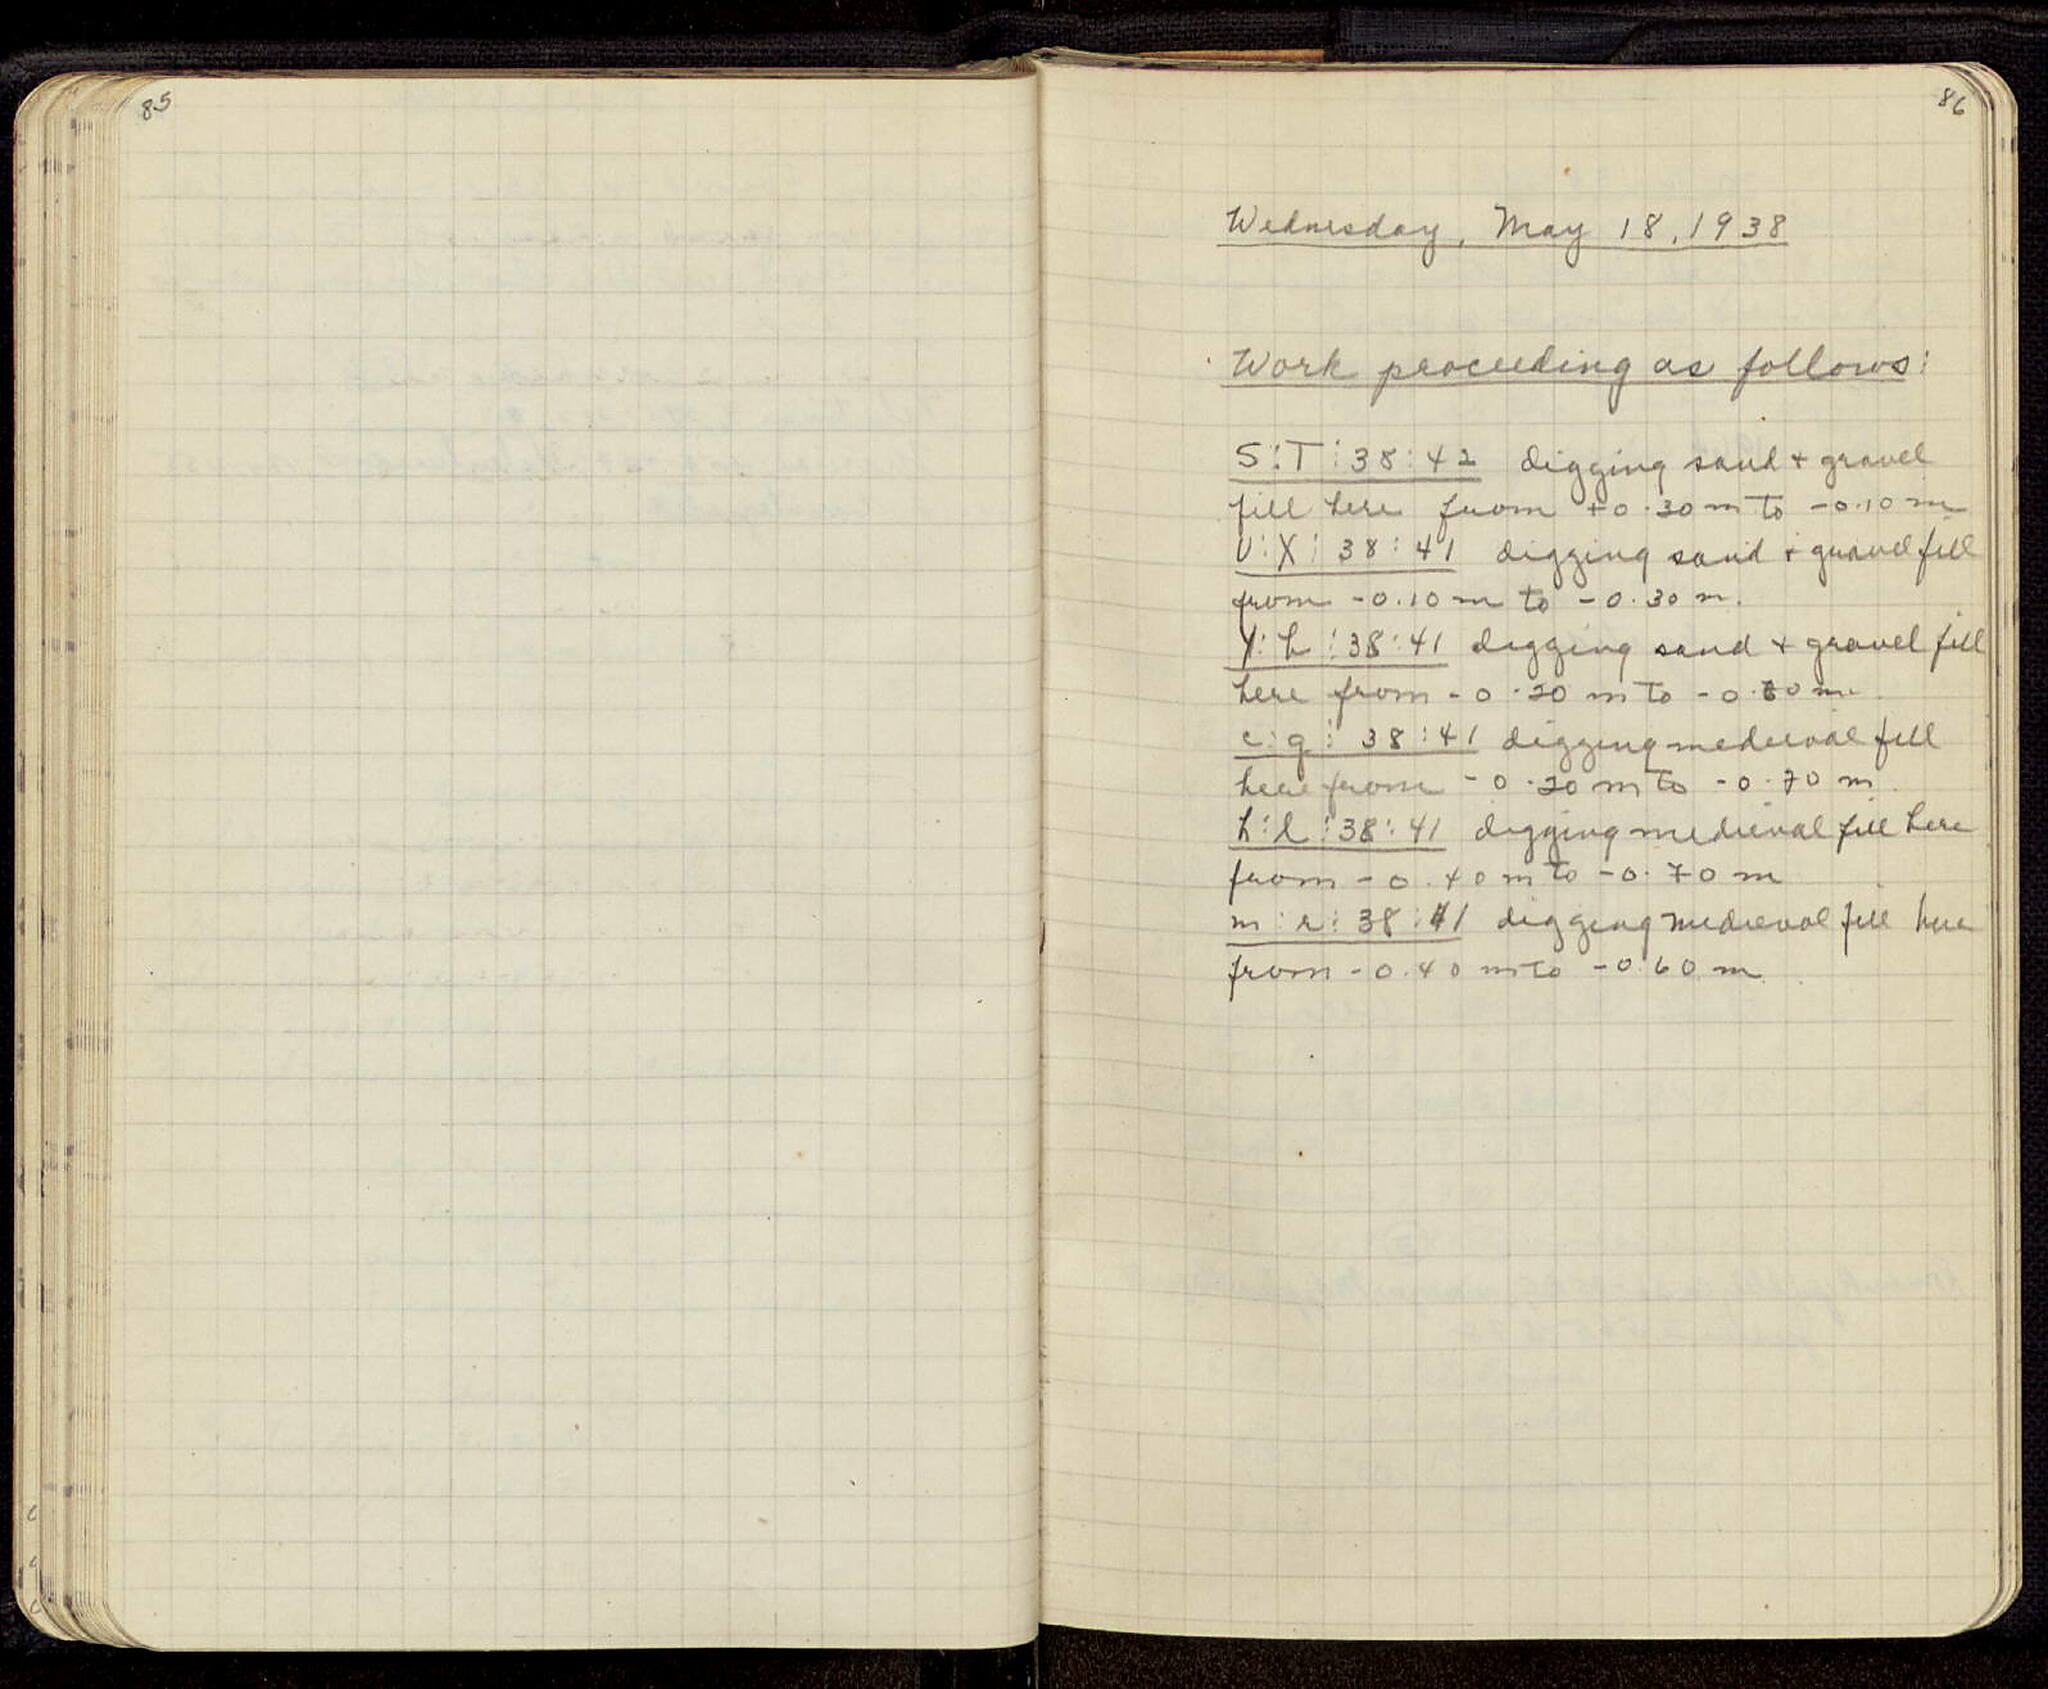 85
86
Wednesday, May 18, 1938
Work proceeding as follows:
S:T:38:42 digging sand + gravel
fill here from +0.30 m to -0.10 m
U:X:38:41 digging sand + gravel fill
from -0.10 m to -0.30 m.
Y:b:38:41 digging sand + gravel fill
here from -0.20 m to -0.60 m.
c:g:38:41 digging medieval fill
here from -0.20 m to -0.70 m.
h:l:38:41 digging medieval fill here
from -0.40 m to -0.70 m
m:r:38:41 digging medieval fill here
from -0.40 m to -0.60 m.